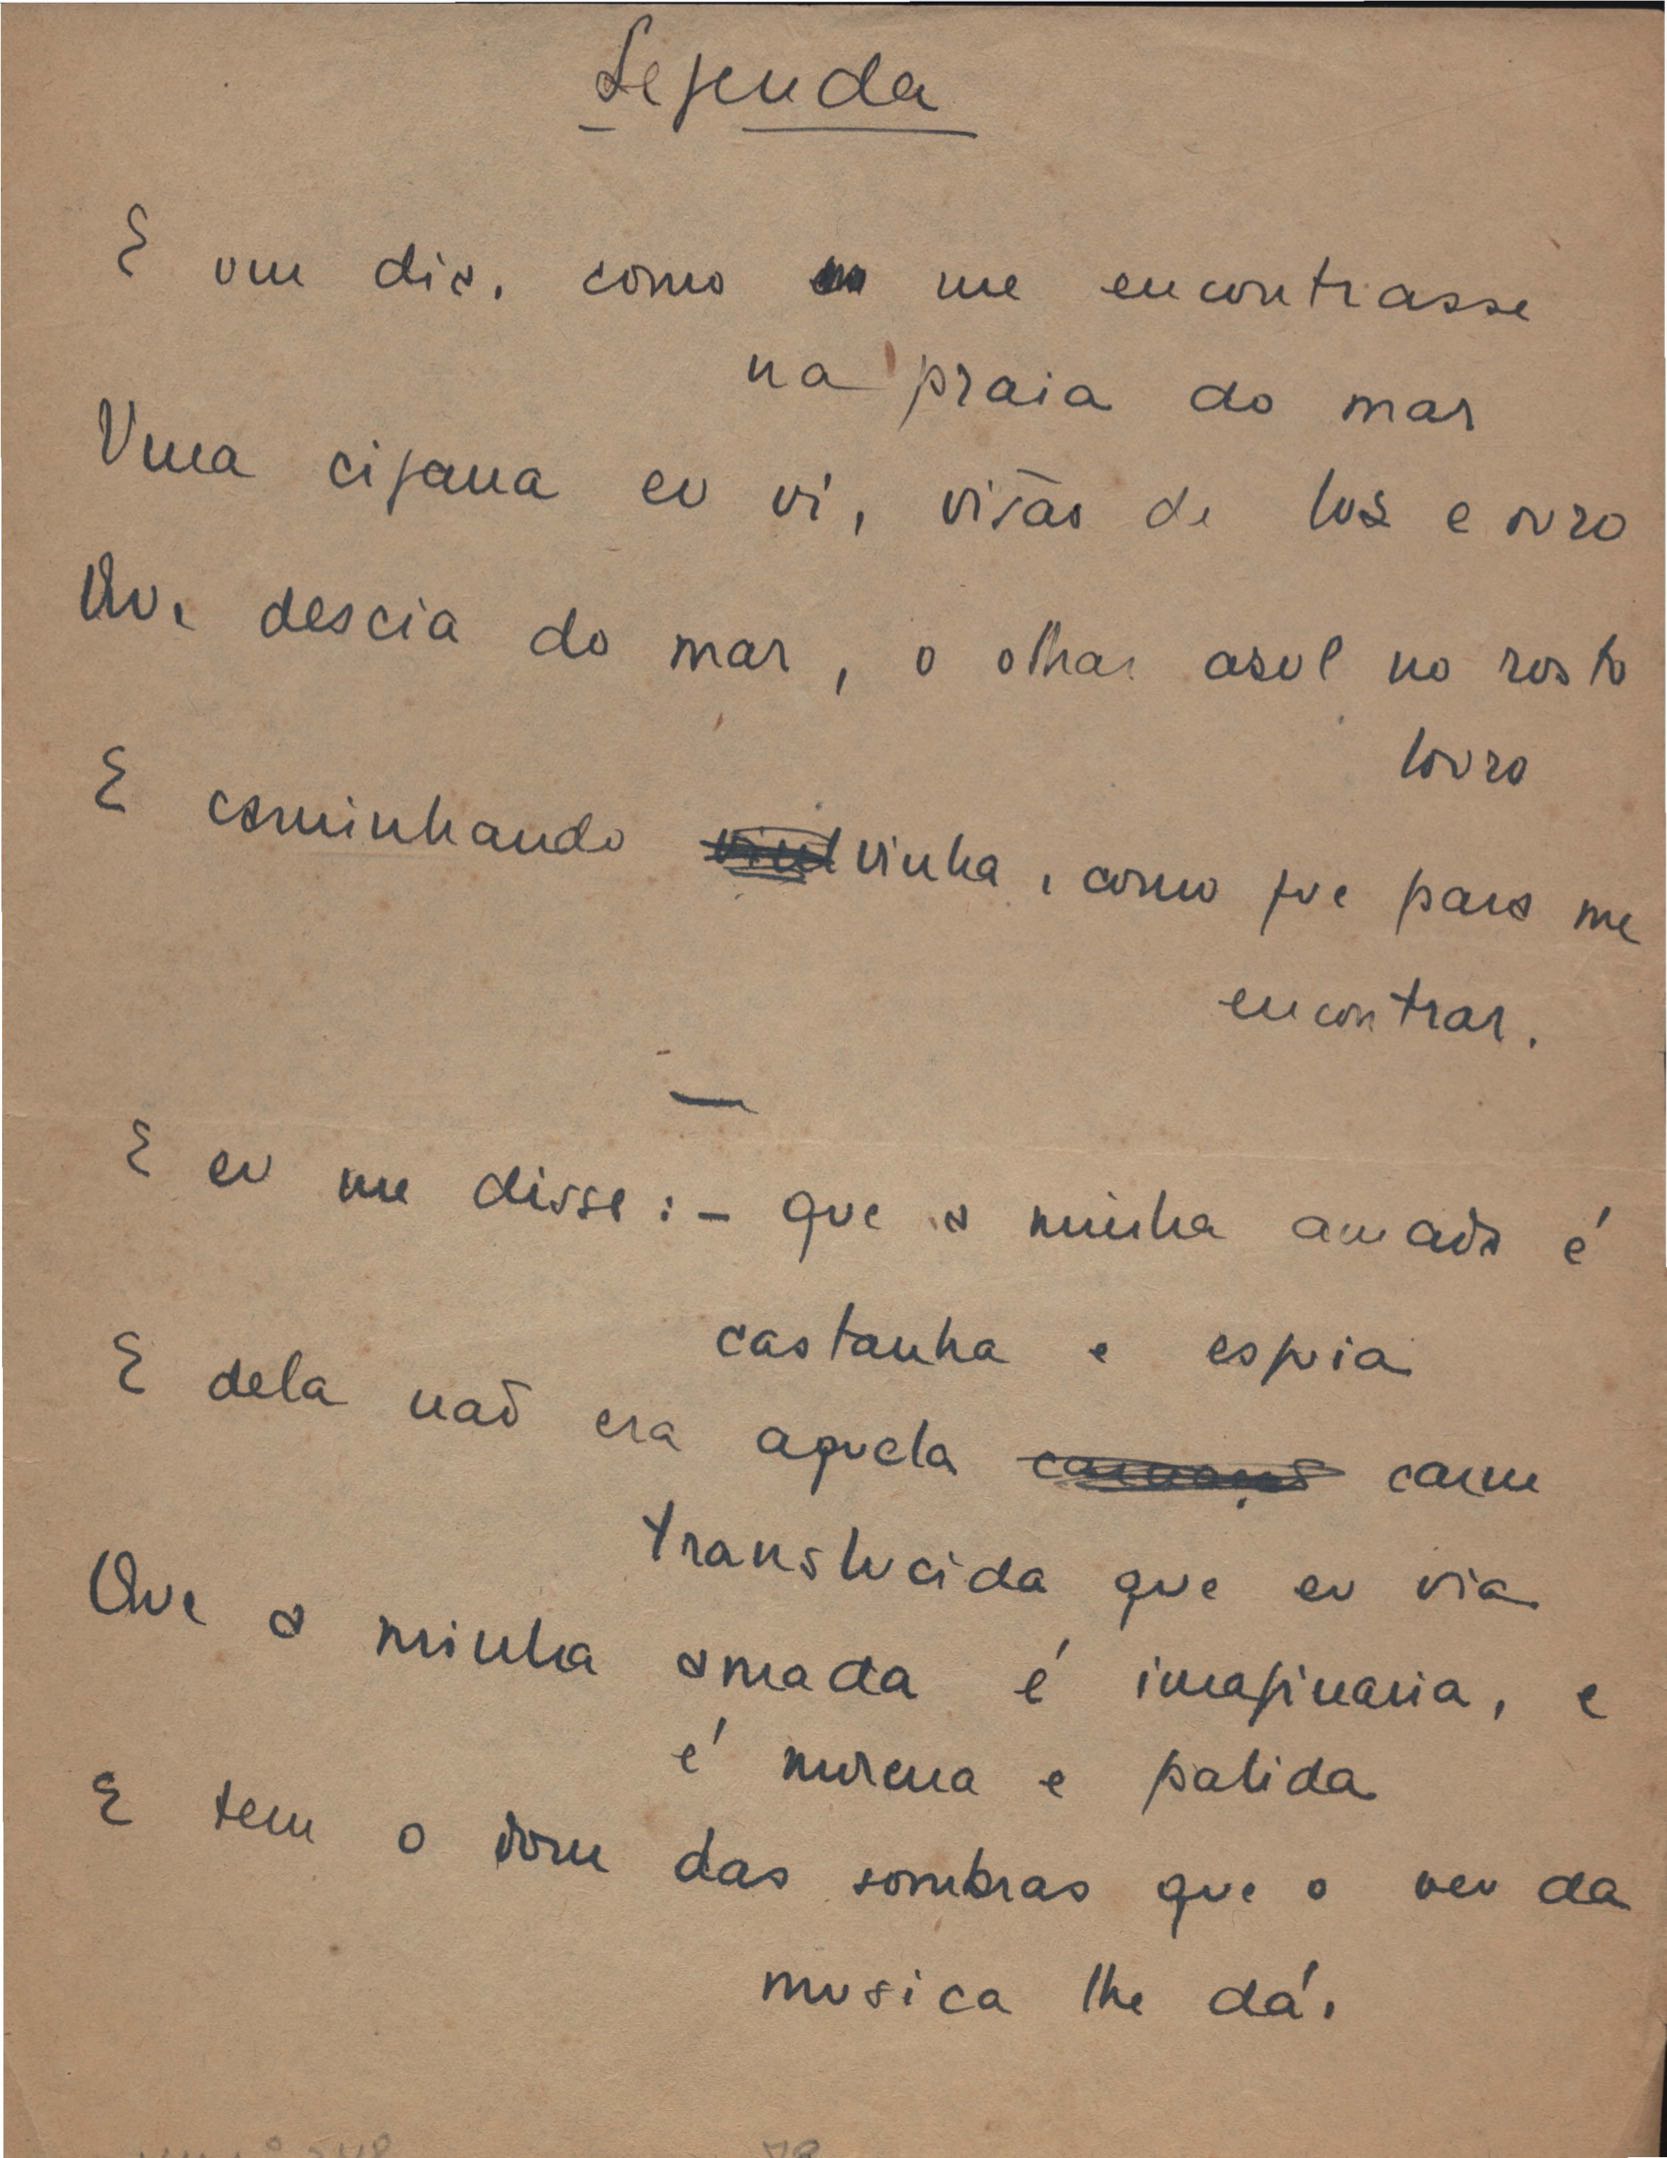 Legenda
E um dia, como me encontrasse
na praia do mar
Uma cigana eu vi, visão de luz e ouro
Que descia do mar, o olhar asul no rosto
louro
E caminhando vinha, como que para me
encontrar.
—
E eu me disse: – que a minha amada é
castanha e esguia
E dela naõ era aquela carne
translucida que eu via
Que a minha amada é imaginaria, e
é morena e palida
E tem o dom das sombras que o veu da
musica lhe dá.